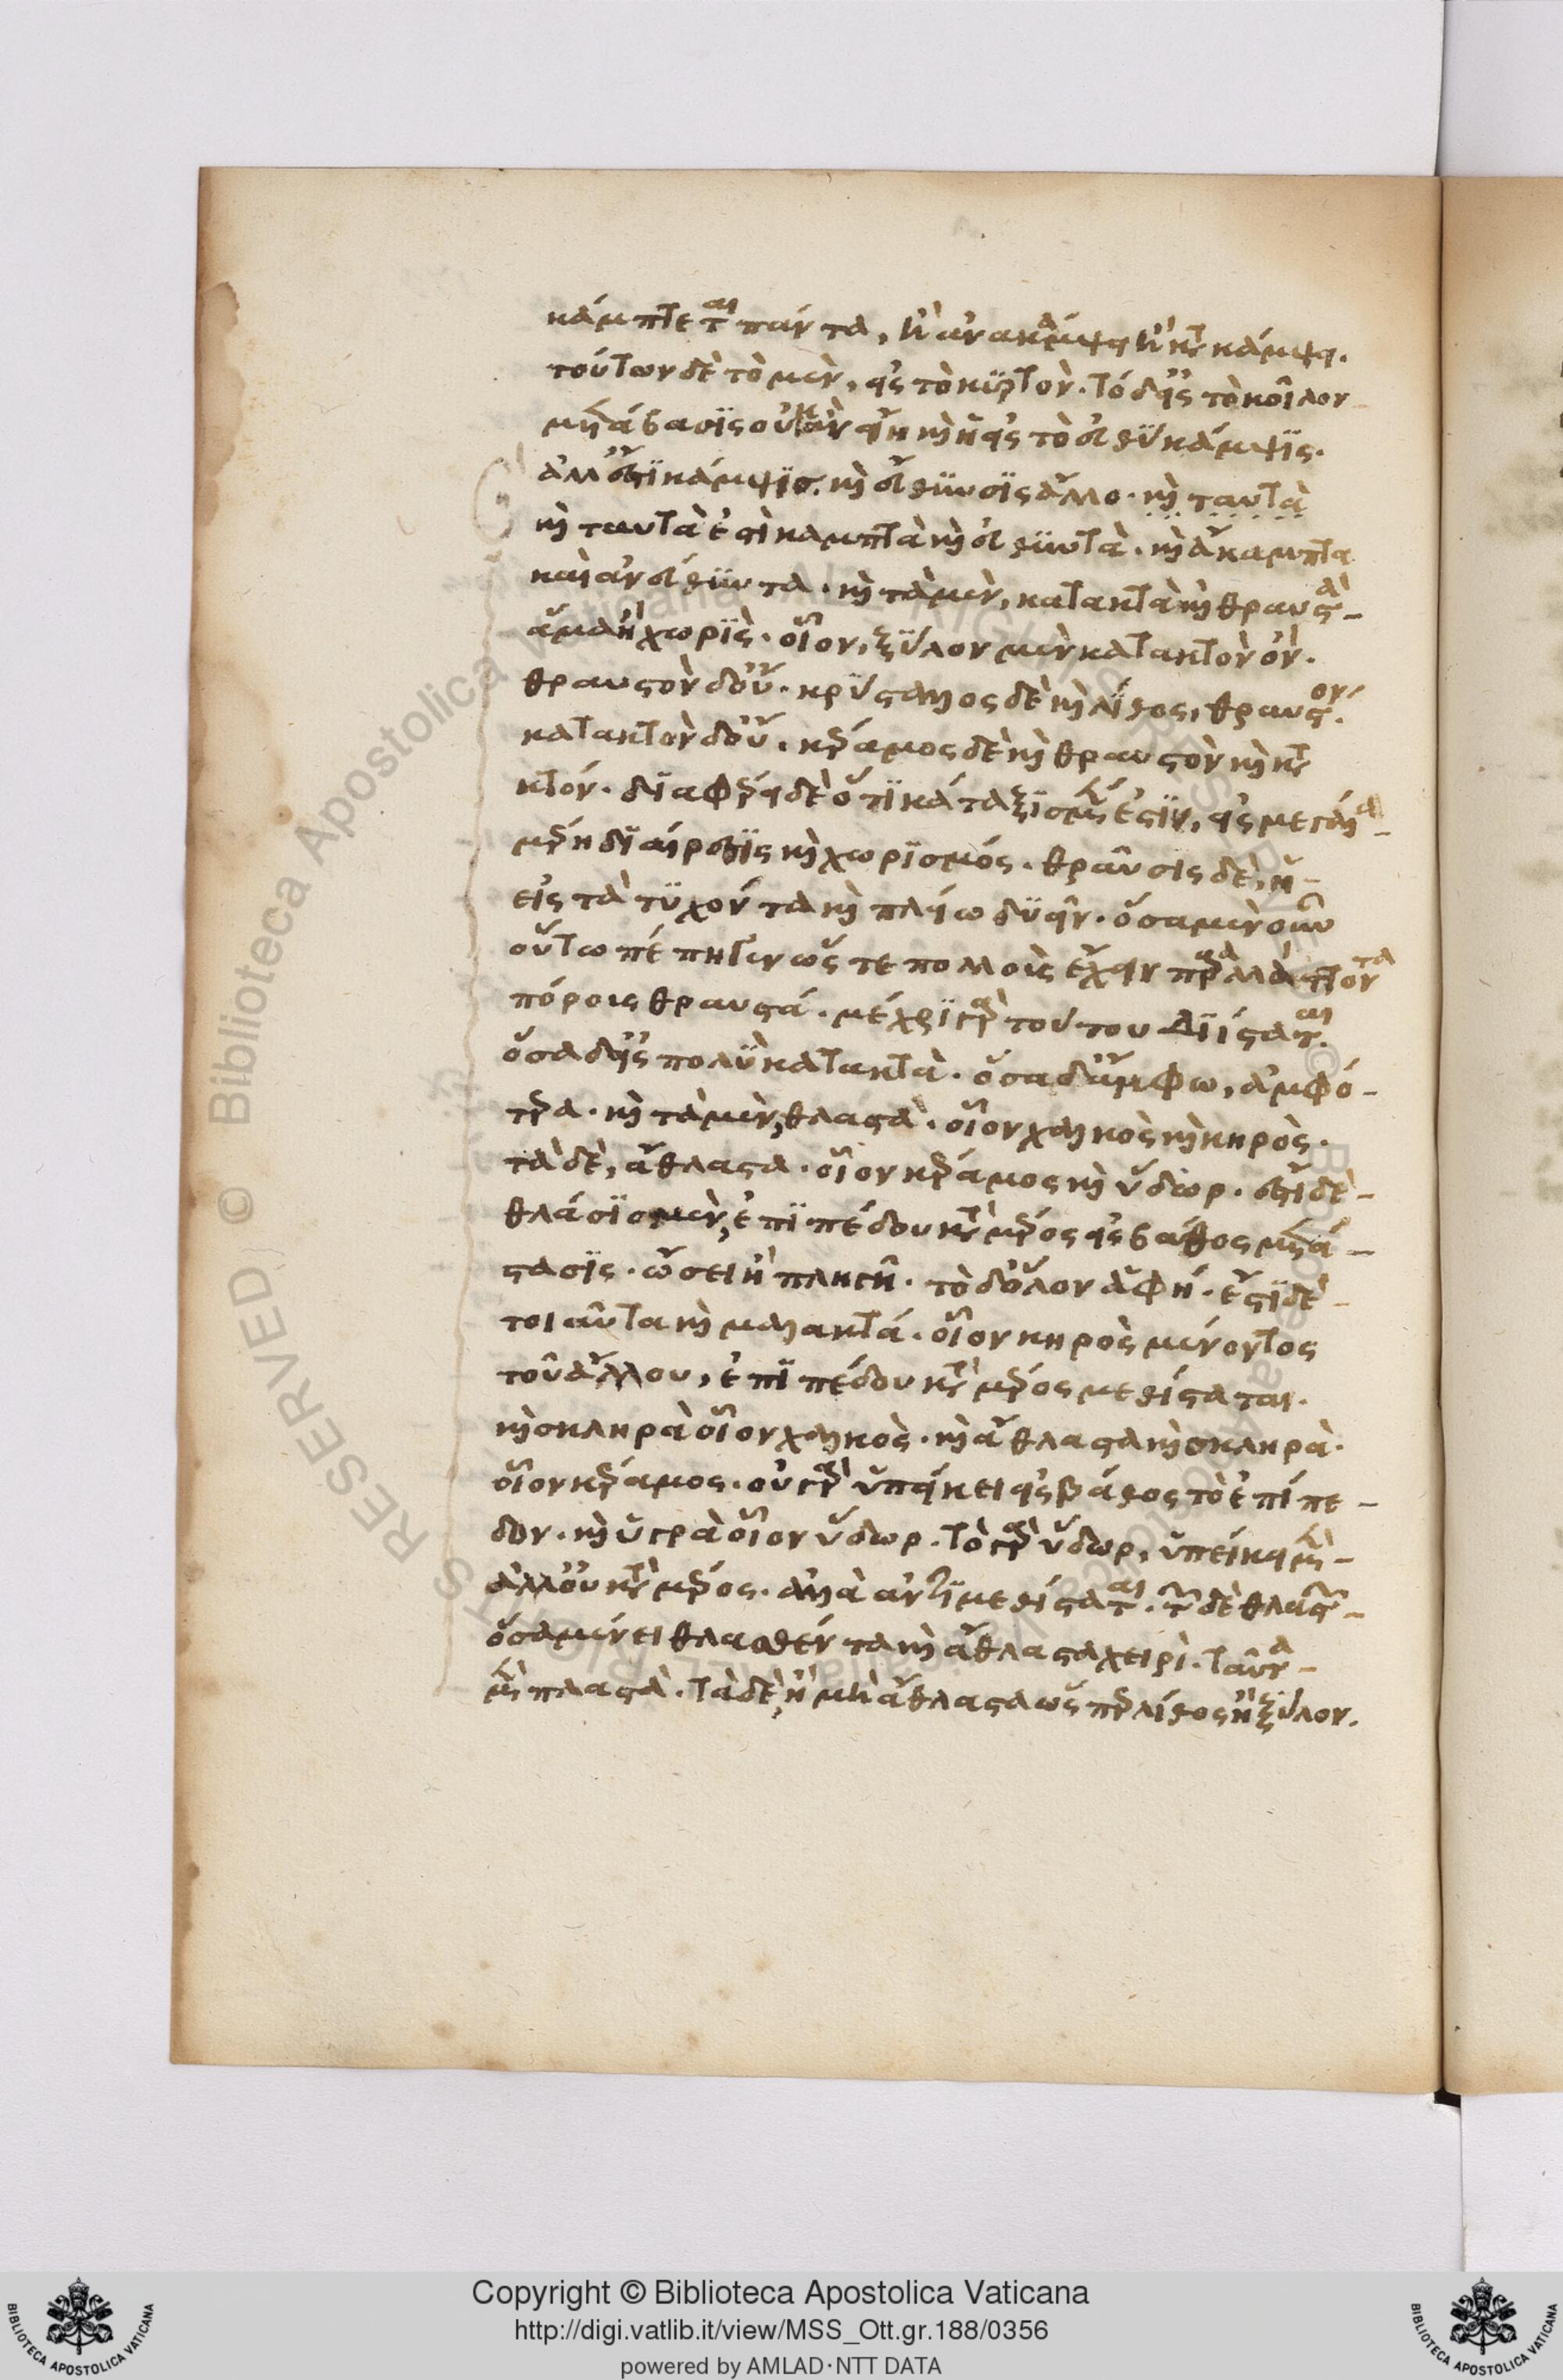 κάμπτεται πάντα, ἢ ἀνακάμψει ἢ κατακάμψει.
τούτων δὲ τὸ μὲν, εἰς τὸ κυρτὸν. τὸ δ' εἰς τὸ κοῖλον
μετάβασις οὐκ ἂν εἴη καὶ ἡ εἰς τὸ εὐθὺ κάμψις.
ἀλλ' ἔστι κάμψις καὶ εὔθυνσις ἄλλο. καὶ ταυτὰ
καὶ ταυτὰ ἐστὶ καμπτὰ καὶ εὐθυντὰ. καὶ ἄκαμπτα
καὶ ἀνεύθυντα. καὶ τὰ μὲν, κατακτὰ καὶ θραυστὰ
ἅμα ἢ χωρὶς. οἷον, ξύλον μὲν κατακτὸν ὂν.
θραυστὸν δ' οὔ. κρύσταλλος δὲ καὶ λίθος, θραυστόν.
κατακτὸν δ' οὔ. κέραμος δὲ καὶ θραυστὸν καὶ κατα
κτόν. διαφέρει δὲ ὅτι κάταξις μέν ἐστιν, εἰς μεγάλα
μέρη διαίρεσις καὶ χωρισμός. θραῦσις δὲ, ἡ
εἰς τὰ τυχόντα καὶ πλείω δυεῖν. ὅσα μὲν οὖν
οὕτω πέπηγεν ὥστε πολλοὺς ἔχειν παραλλάττοντας
πόροις θραυστά. μέχρι γὰρ τούτου διίσταται.
ὅσα δ' εἰς πολὺ κατακτὰ. ὅσα δ' ἄμφω, ἀμφό
τερα. καὶ τὰ μὲν, θλαστὰ. οἷον χαλκὸς καὶ κηρὸς.
τὰ δὲ, ἄθλαστα. οἷον κέραμος καὶ ὕδωρ. ἔστι δὲ
θλάσις μὲν, ἐπιπέδου κατὰ μέρος εἰς βάθος μετά
στασις. ὤσει ἢ πληγῆ. τὸ δ' ὅλον ἁφῆ. ἔστι δὲ
τοιαῦτα καὶ μαλακτά. οἷον κηρὸς μένοντος
τοῦ ἄλλου, ἐπιπέδου κατὰ μέρος μεθίσταται.
καὶ σκληρὰ οἷον χαλκὸς. καὶ ἄθλαστα καὶ σκληρὰ.
οἷον κέραμος. οὐ γὰρ ὑπείκει εἰς βάθος τὸ ἐπίπε
δον. καὶ ὑγρὰ οἷον ὕδωρ. τὸ γὰρ ὕδωρ, ὑπείκει μὲν
ἀλλ' οὐ κατὰ μέρος. ἀλλὰ ἀντιμεθίσταται. τῶν δὲ θλαστῶν
ὅσα μένει θλασθέντα καὶ ἄθλαστα χειρὶ. ταῦτα
μὲν πλαστὰ. τὰ δὲ, ἢ μὴ ἄθλαστα ὥσπερ λίθος ἢ ξύλον.
Copyright © Biblioteca Apostolica Vaticana
http://digi.vatlib.it/view/MSS_Ott.gr.188/0356
powered by AMLAD·NTT DATA